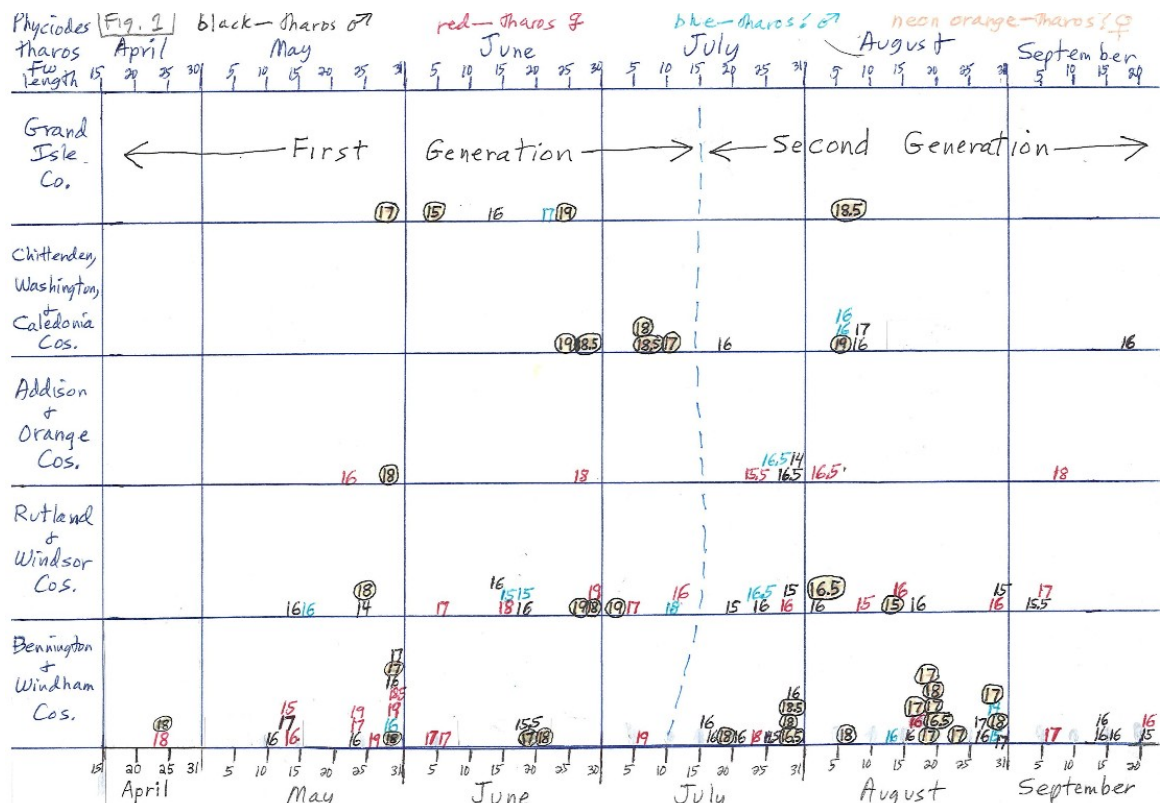 Phyciodes Fig. 1 black—tharos ♂ red—tharos ♀ blue—tharos? ♂ neon orange—tharos? ♀
tharos April May June July August September
FW
length 15 20 25 30 5 10 15 20 25 31 5 10 15 20 25 30 5 10 15 20 25 31 5 10 15 20 25 30 5 10 15 20
Grand
Isle
Co.
← First Generation → ← Second Generation →
17 15 16 17 19 18.5
Chittenden,
Washington,
&
Caledonia
Cos.
16
18 16 17
19 18.5 18.5 17 16 19 16 16
Addison
&
Orange
Cos.
16.5 14
16 18 18 15.5 16.5 16.5 18
Rutland
&
Windsor
Cos.
18 16 15 15 19 16 16.5 15 16.5 16 15 17
16 16 14 17 18 16 19 18 19 17 18 15 16 16 16 15 15 16 16 15.5
Bennington
&
Windham
Cos.
17
17
16 17
18.5 16 18 17
15 19 19 18.5 17 17
18 17 17 16 15.5 16 18 16 16.5 17 18 16 16
18 10 16 16 19 18 17 17 17 18 19 16 18 16 18 16.5 18 16 16 17 17 16 17 16 16 15
15 20 25 31 5 10 15 20 25 31 5 10 15 20 25 30 5 10 15 20 25 31 5 10 15 20 25 31 5 10 15 20
April May June July August September